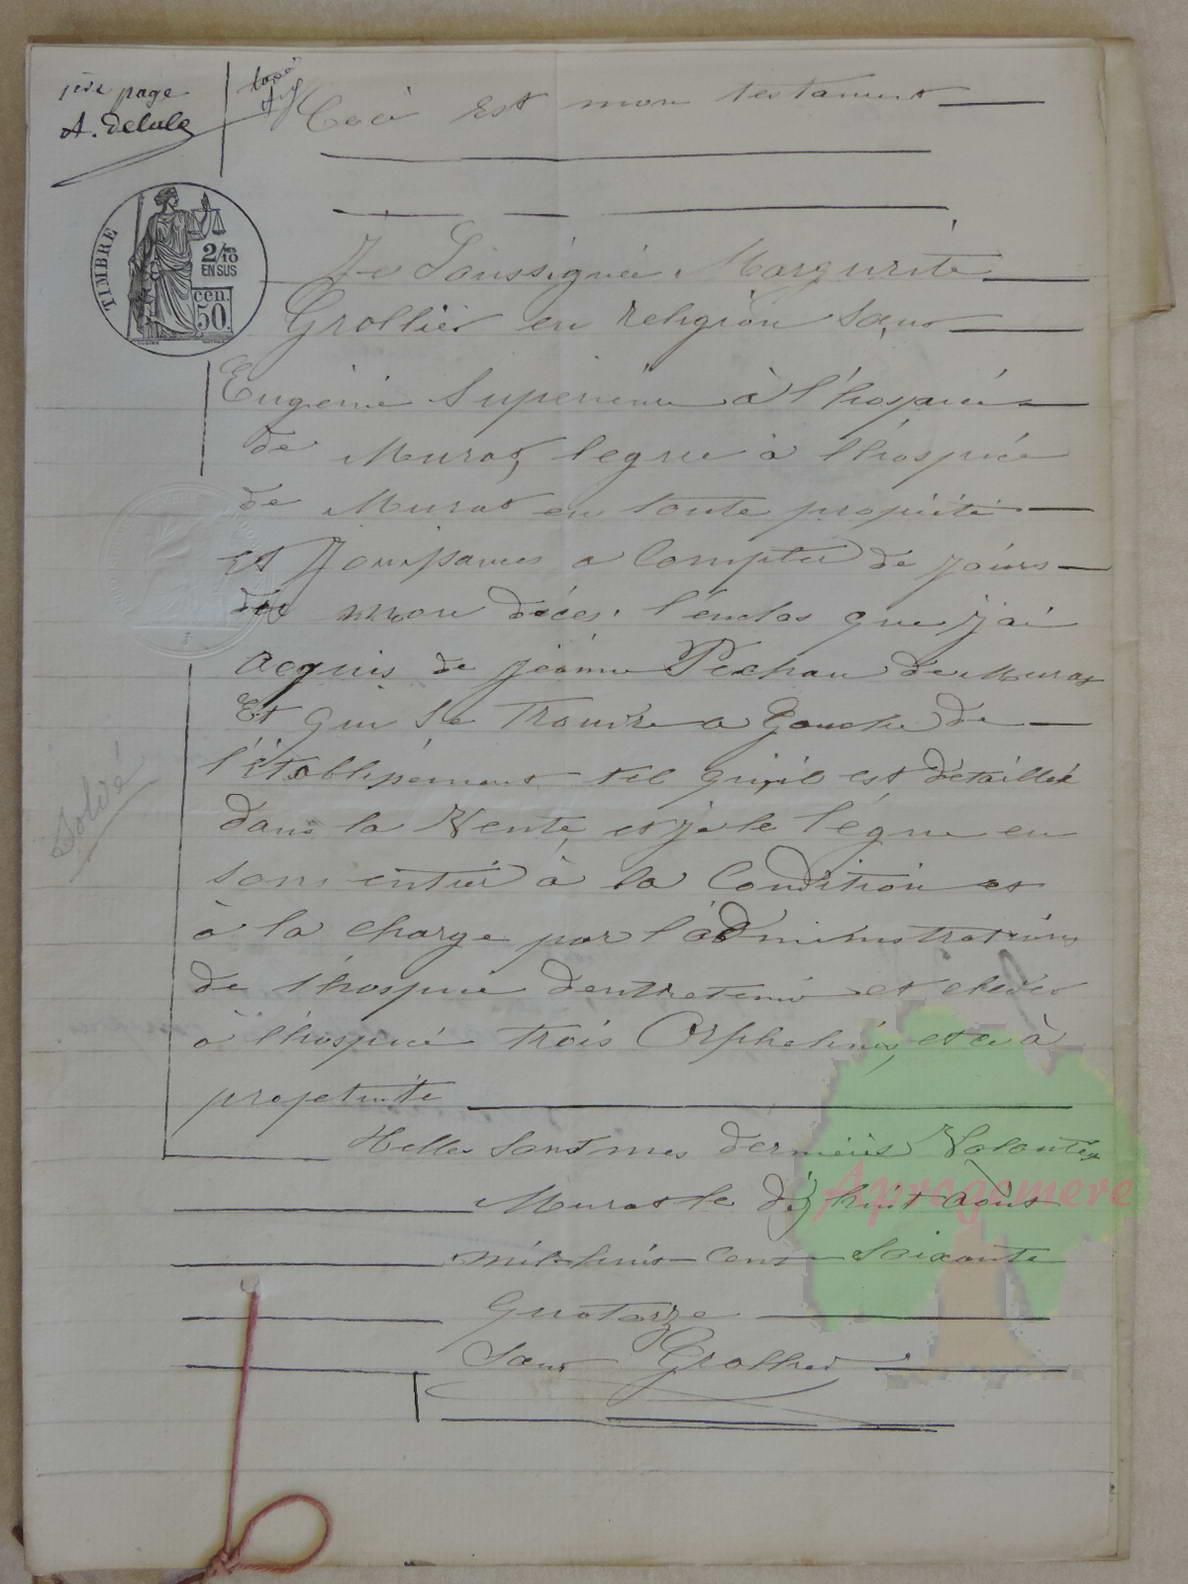 1ère page
A. Delule
Ceci est mon testament
TIMBRE
2/10
EN SUS
cen.
50.
Je Soussignée Margurite
Grollier en religion Sœur
Eugénie Superieure à l'hospice
de Murat, legue à l'hospice
de Murat en toute propiété
et Jouissances a compter de jours
de mon décés. l'enclos que j'ai
acquis de Jeanne Pechau de Murat
Et qui se trouve a Gauche de
l'établissement tel qu'il est détaillé
dans la Vente, et je le légue en
son entier à la Condition et
à la charge par l'administration
de l'hospice d'entretenir et elever
à l'hospice trois Orphelines, et ce à
propetuité
Helles Sont mes dernieres Volontés
Murat le dix huit août
mil huit cent Soixante
Quatorze
Sœur Grollier
Soldé
Aprogemere